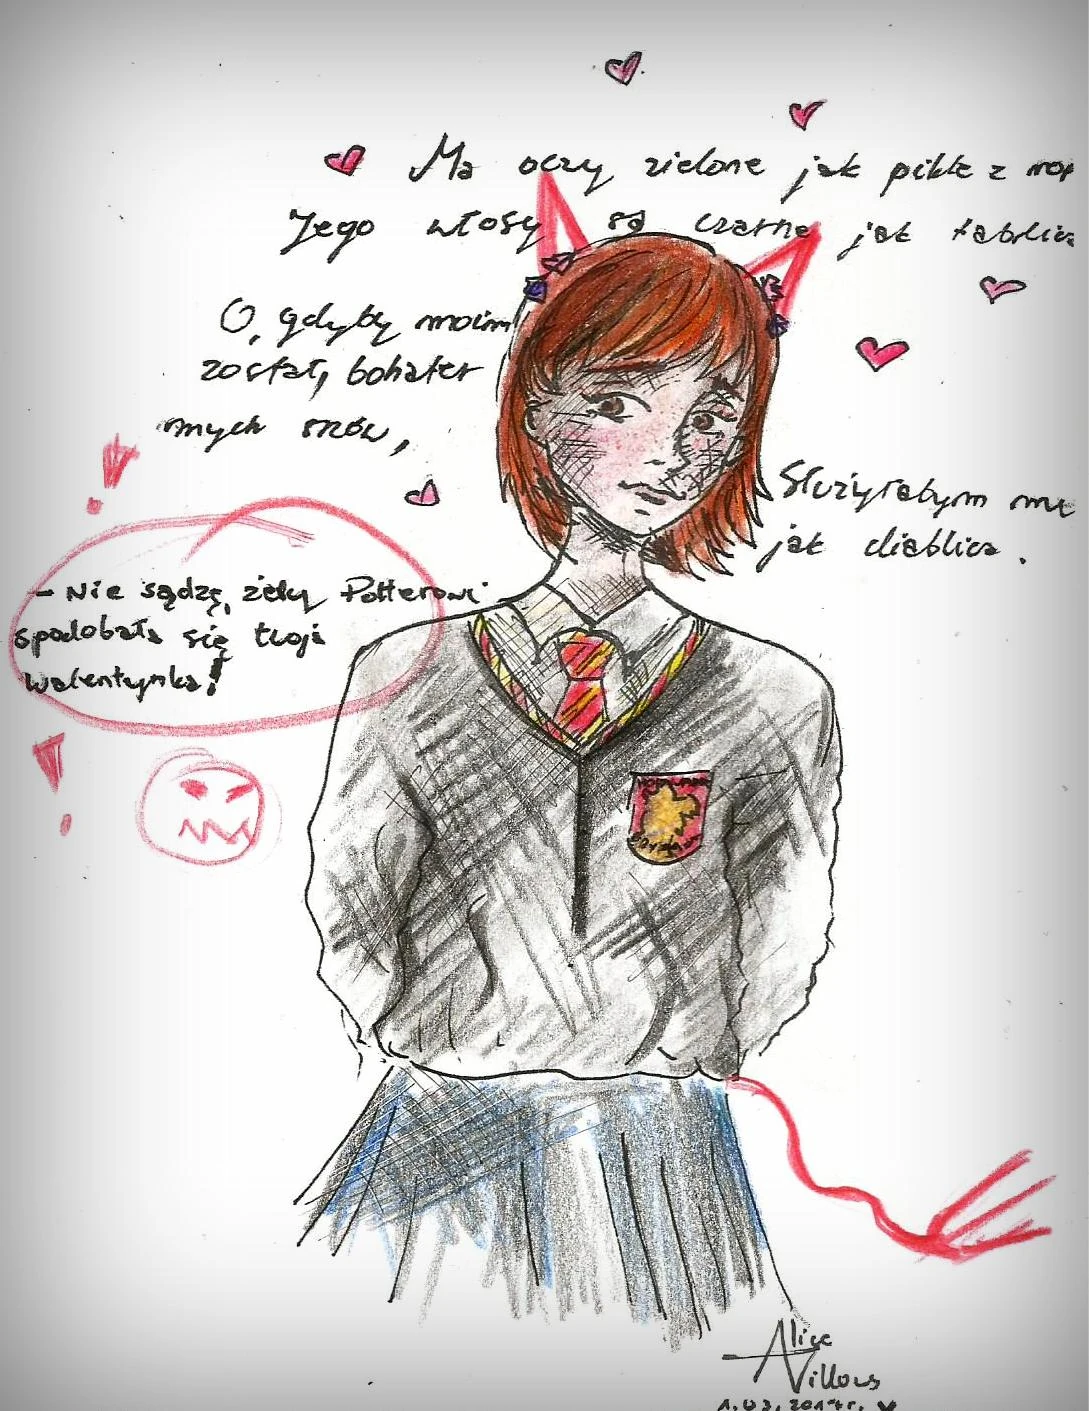 Ma oczy zielone jak pikle z
Jego włosy są czarne jak
O, gdyby moim
został, bohater
mych snów,
Służyłabym mu
jak diablica.
- Nie sądzę, żeby Potterowi
spodobała się twoja
walentynka!
Alice
Villous